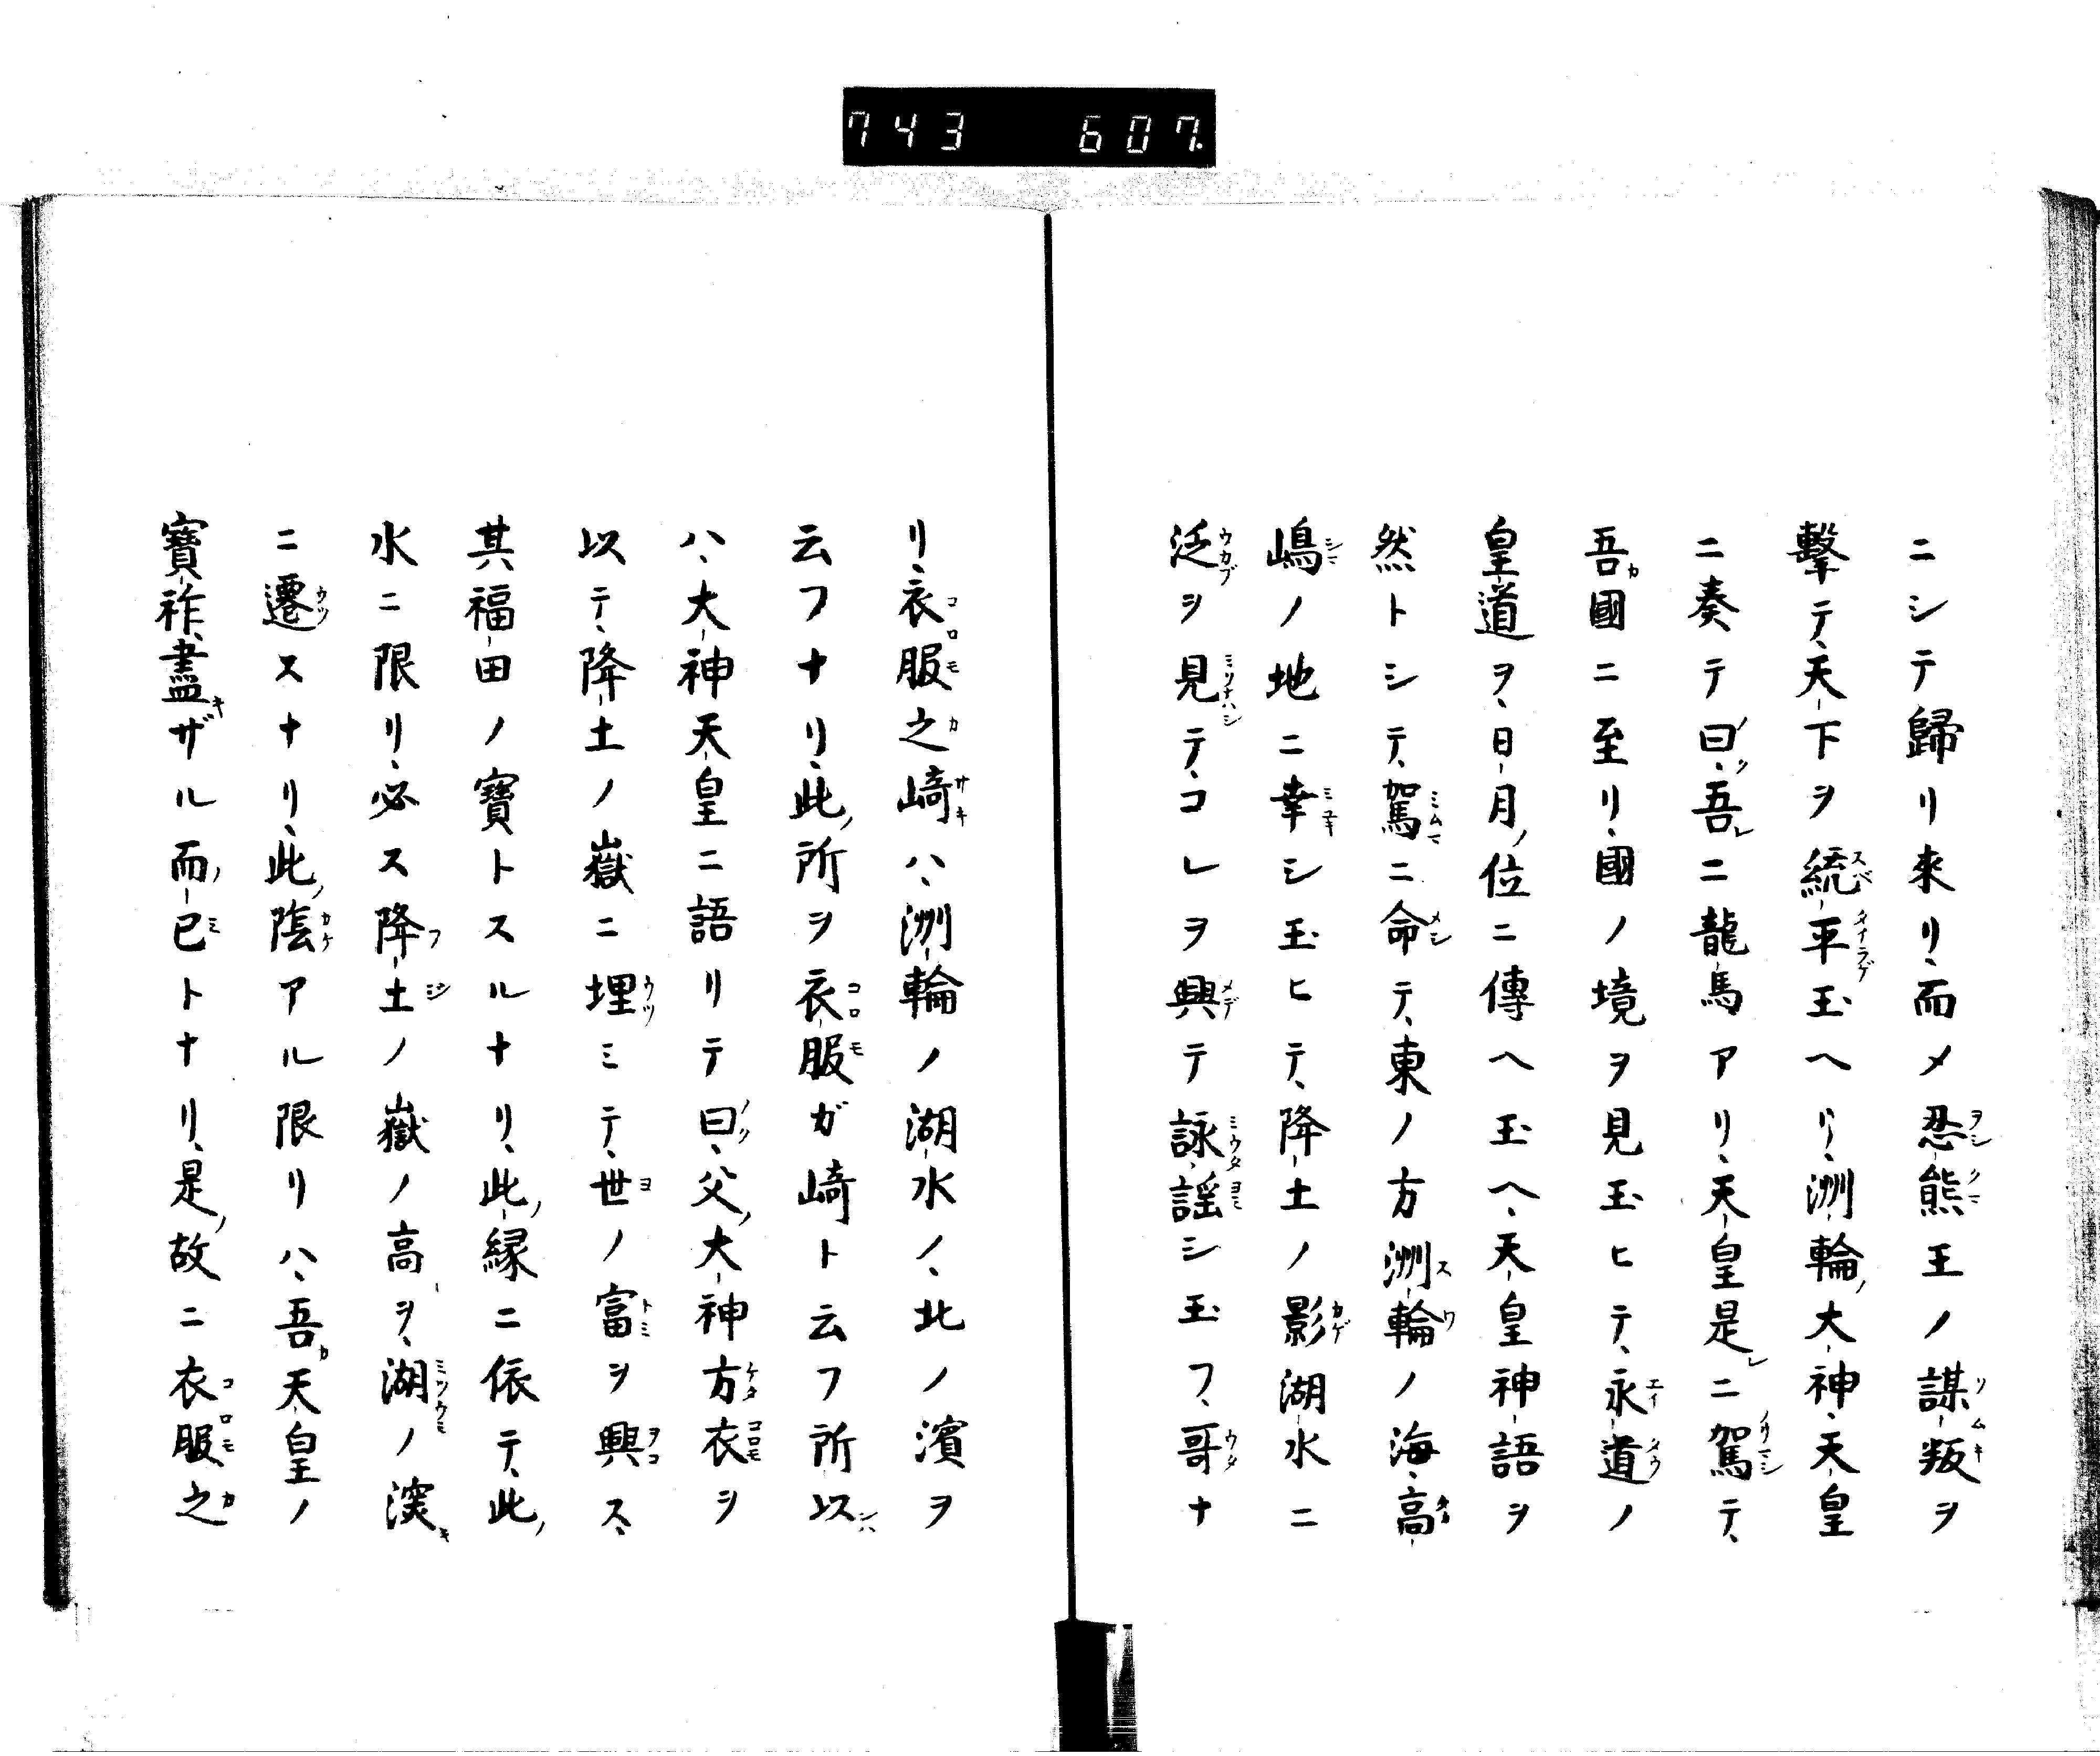 743 607.
ニシテ歸リ來リ、而メ忍熊王ノ謀叛ヲ
擊テ、天下ヲ統平玉ヘリ、洲輪ノ大神、天皇
ニ奏テ曰ク、吾レニ龍馬アリ、天皇是レニ駕テ、
吾カ國ニ至リ、國ノ境ヲ見玉ヒテ、永道ノ
皇道ヲ、日月ノ位ニ傳ヘ玉ヘ、天皇神語ヲ
然トシテ、駕ニ命テ、東ノ方洲輪ノ海、高
嶋ノ地ニ幸シ玉ヒテ、降土ノ影湖水ニ
泛ヲ見テ、コレヲ興テ詠謡シ玉フ、哥ナ
リ、衣服之崎ハ、洲輪ノ湖水ノ、北ノ濱ヲ
云フナリ、此ノ所ヲ衣服ガ崎ト云フ所以
ハ、大神天皇ニ語リテ曰ク、父ノ大神方衣ヲ
以テ、降土ノ嶽ニ埋ミテ、世ノ富ヲ興ス、
其福田ノ寶トスルナリ、此ノ縁ニ依テ、此ノ
水ニ限リ、必ス降土ノ嶽ノ高ヲ、湖ノ
ニ遷スナリ、此ノ陰アル限リハ、吾カ天皇ノ
寶祚、盡キザル而ノ已トナリ、是ノ故ニ衣服之